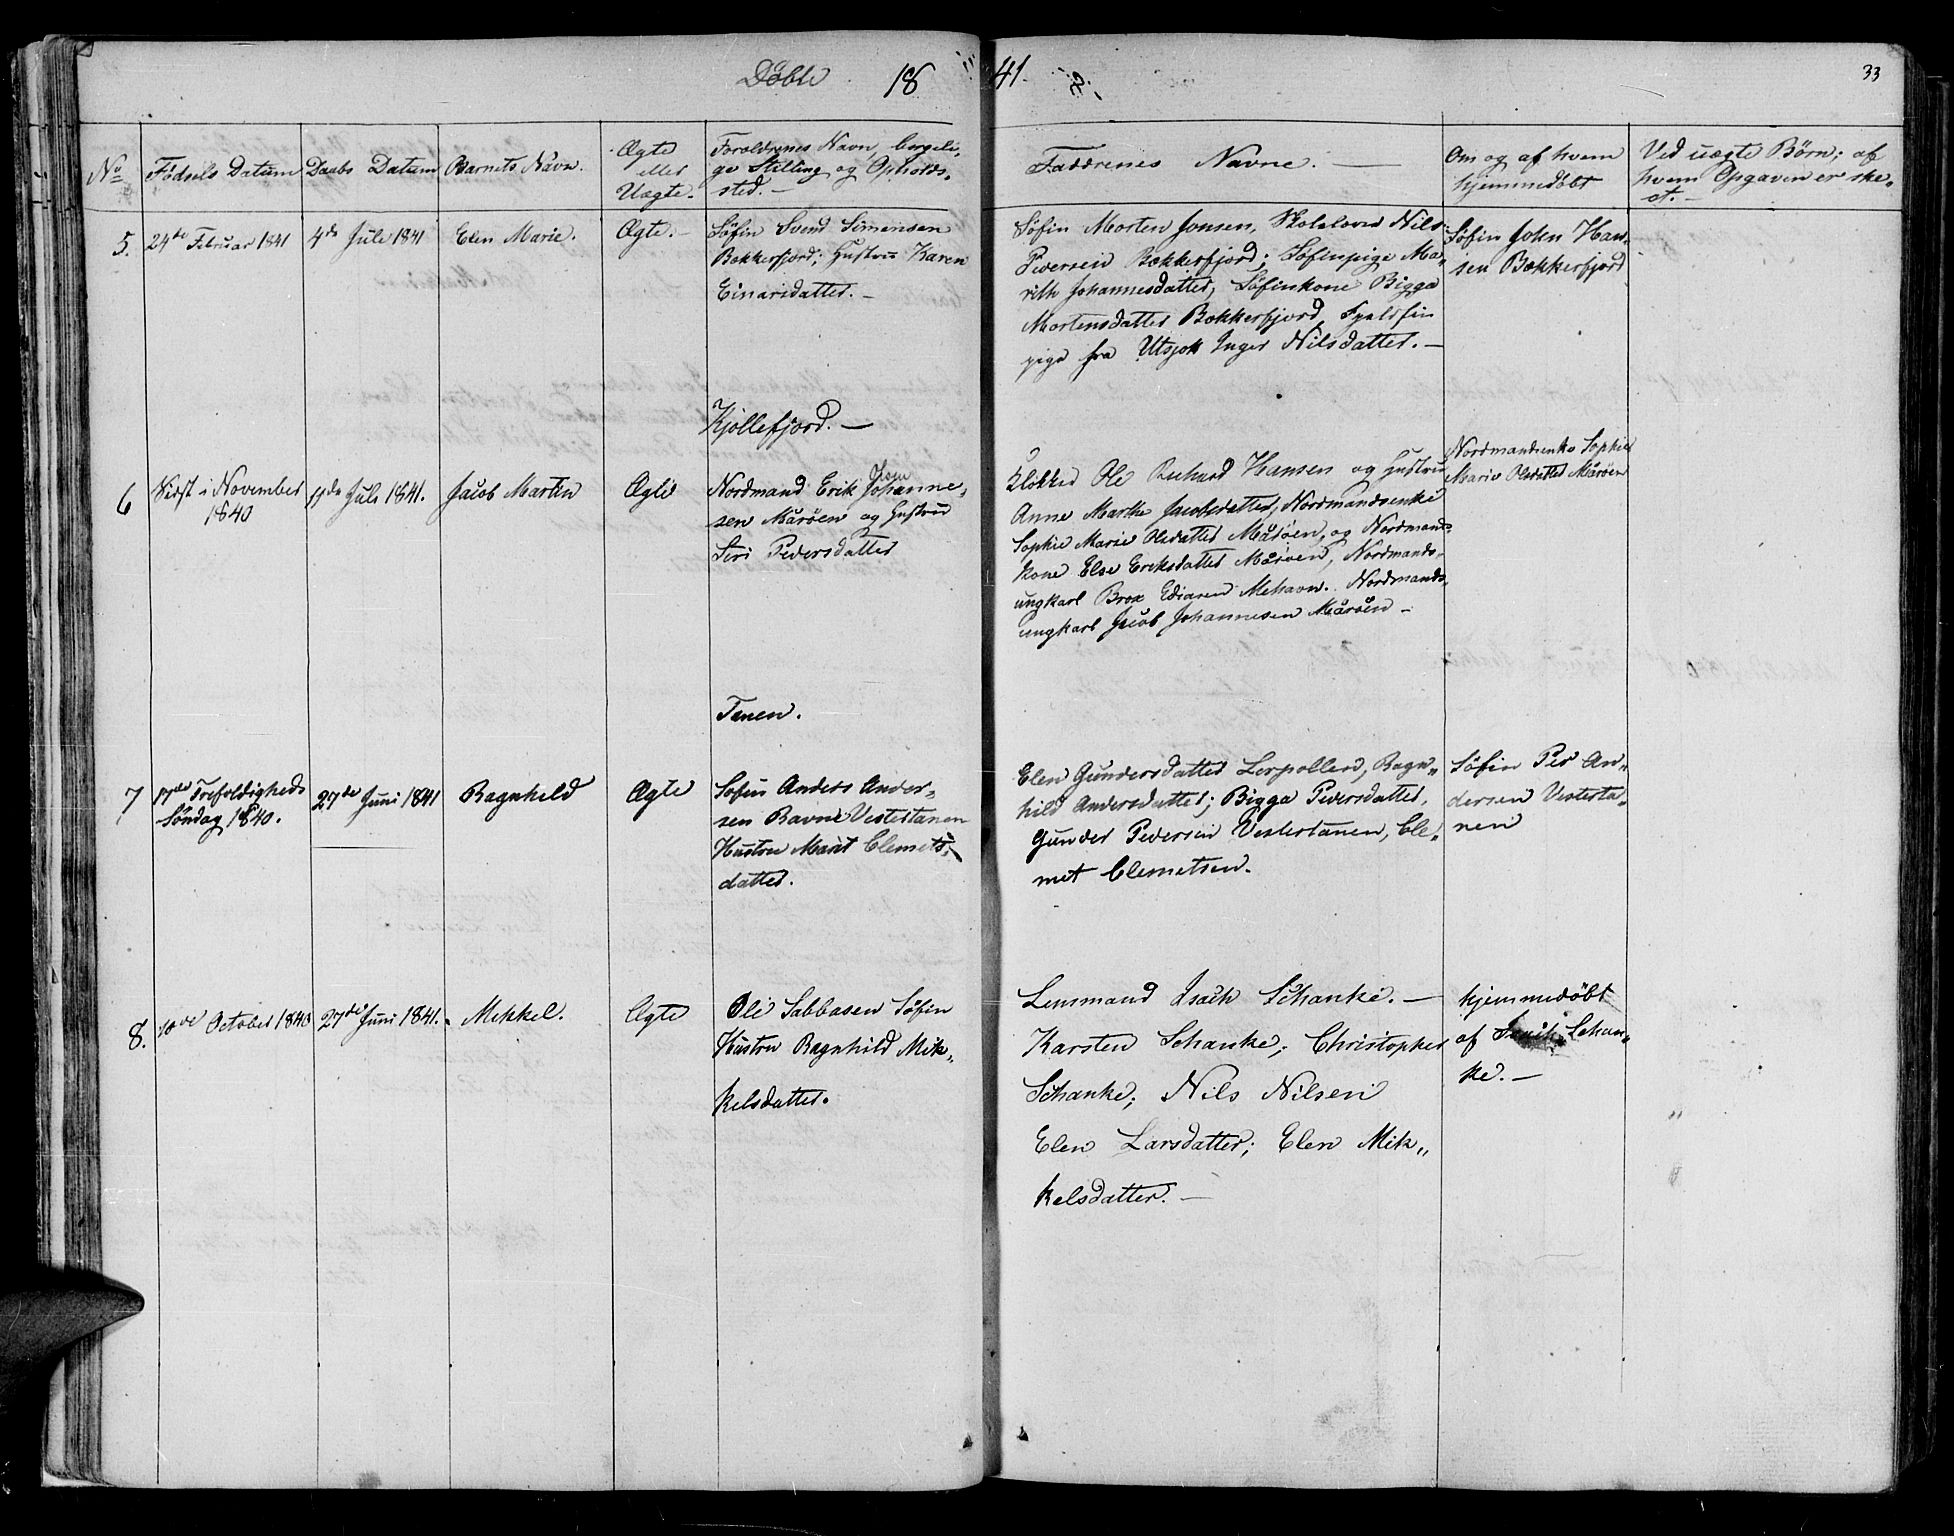 Döbte 1841.
33
No
Fødsels Datum
Daabs Datum
Barnets Navn.
Ægte
eller
Uægte.
Forældrenes Navn, borgeli-
ge Stilling og Opholds-
sted. —
Faddrenes Navne. —
Om og af hvem
hjemmedøbt
Ved uægte Børn; af
hvem Opgaven er ske-
et. —
5.
24de Februar 1841
4de Juli 1841
Elen Marie.
Ægte. —
Søfin Svend Simensen
Bekkerfjord; Hustru Karen
Einarsdatter. —
Søfin Morten Jonsen, Skolelærer Nils
Pedersen Bekkerfjord; Søfinpige Ma-
rith Johannesdatter, Søfinkone Bigga
Mortensdatter Bekkerfjord, Fjeldfin
pige fra Utsjok Inger Nilsdatter. —
Søfin John Han-
sen Bekkerfjord
Kjøllefjord. —
6
Sidst i November
1840
11de Juli 1841.
Jacob Martin
Ægte
Nordmand Erik Johanne-
sen Mårøen og Hustrue
Siri Pedersdatter
Klokker Ole Richard Hansen og Hustru
Anne Marthe Jacobsdatter, Nordmandsenke
Sophie Marie Olsdatter Mårøen, og Nordmands
kone Else Eriksdatter Mårøen, Nordmands-
ungkarl Brox Mehavn. Nordmands-
ungkarl Jacob Johannesen Mårøen —
Nordmandsenke Sophie
Marie Olsdatter Mårøen
Tanen.
7
17de Trefoldigheds
Søndag 1840.
27de Juni 1841
Ragnhild
Ægte
Søfin Anders Ander-
sen Ravne Vestertanen
Hustru Marit Clemets-
datter.
Elen Gundersdatter Lerpollen, Ragn-
hild Andersdatter; Bigga Pedersdatter,
Gunder Pedersen Vestertanen, Cle-
met Clemetsen.
Søfin Per An-
dersen Vesterta-
nen
8.
10de October 1840
27de Juni 1841.
Mikkel.
Ægte
Ole Sabbasen Søfin
Hustru Ragnhild Mik-
kelsdatter.
Lensmand Isach Schanke. —
Karsten Schanke; Christopher
Schanke; Nils Nilsen
Elen Larsdatter; Elen Mik-
kelsdatter. —
hjemmedøbt
af Isach Schan-
ke. —